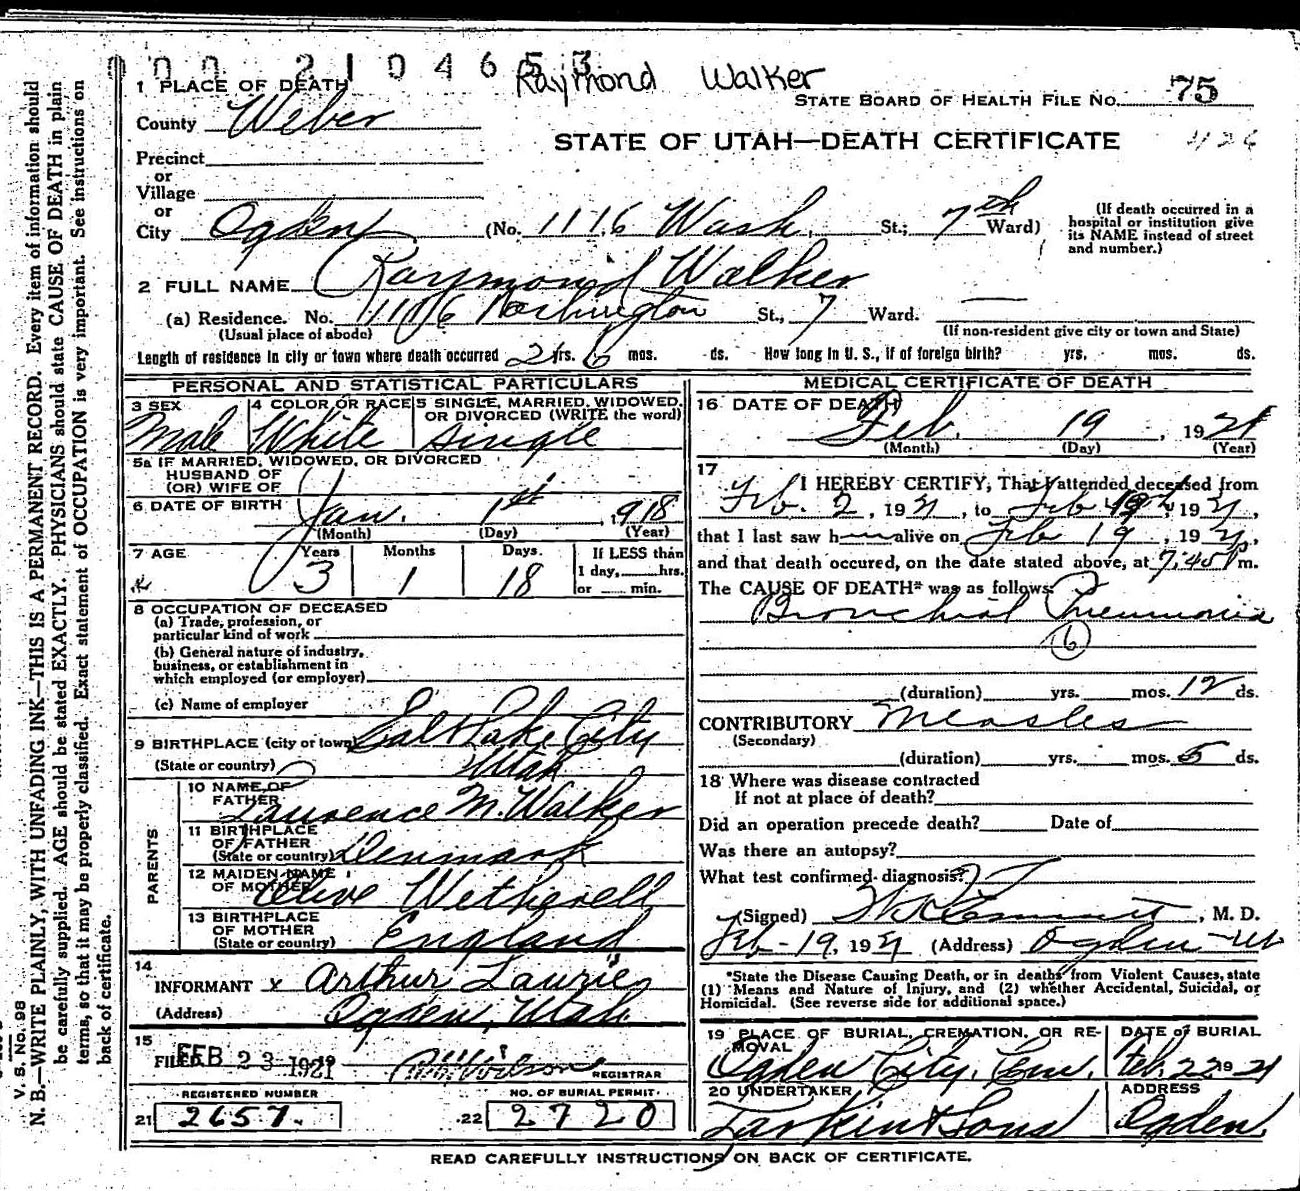 000 2104653
Raymond Walker
1 PLACE OF DEATH
STATE BOARD OF HEALTH FILE No. 75
County Weber
STATE OF UTAH—DEATH CERTIFICATE 1126
Precinct
or
Village
or
City Ogden (No. 1116 Wash. St.; 7th Ward)
(If death occurred in a
hospital or institution give
its NAME instead of street
and number.)
2 FULL NAME Raymond Walker
(a) Residence. No. 1116 Washington St., 7 Ward.
(Usual place of abode) (If non-resident give city or town and State)
Length of residence in city or town where death occurred 2 yrs. 6 mos. ds. How long in U. S., if of foreign birth? yrs. mos. ds.
PERSONAL AND STATISTICAL PARTICULARS
3 SEX Male
4 COLOR OR RACE White
5 SINGLE, MARRIED, WIDOWED, OR DIVORCED (WRITE the word) Single
5a IF MARRIED, WIDOWED, OR DIVORCED
HUSBAND OF
(OR) WIFE OF
6 DATE OF BIRTH Jan. 1st, 1918
(Month) (Day) (Year)
7 AGE Years 3 Months 1 Days. 18
If LESS than
1 day, hrs.
or min.
8 OCCUPATION OF DECEASED
(a) Trade, profession, or
particular kind of work
(b) General nature of industry,
business, or establishment in
which employed (or employer)
(c) Name of employer
9 BIRTHPLACE (city or town) Salt Lake City
(State or country) Utah
PARENTS
10 NAME OF
FATHER Laurence M. Walker
11 BIRTHPLACE
OF FATHER
(State or country) Denmark
12 MAIDEN NAME
OF MOTHER Olive Wetherell
13 BIRTHPLACE
OF MOTHER
(State or country) England
14
INFORMANT x Arthur Laurie
(Address) Ogden, Utah
15
FILED FEB 23 1921 REGISTRAR
REGISTERED NUMBER
21 2657.
NO. OF BURIAL PERMIT
22 2720
MEDICAL CERTIFICATE OF DEATH
16 DATE OF DEATH
Feb. 19, 1921
(Month) (Day) (Year)
17
I HEREBY CERTIFY, That I attended deceased from
Feb. 2, 1921, to Feb 19th, 1921,
that I last saw h alive on Feb 19, 1921,
and that death occured, on the date stated above, at 7.40 P m.
The CAUSE OF DEATH* was as follows:
Bronchial Pneumonia
6
(duration) yrs. mos. 12 ds.
CONTRIBUTORY Measles
(Secondary)
(duration) yrs. mos. 5 ds.
18 Where was disease contracted
If not at place of death?
Did an operation precede death? Date of
Was there an autopsy?
What test confirmed diagnosis?
(Signed) , M. D.
Feb-19, 1921 (Address) Ogden-Ut
*State the Disease Causing Death, or in deaths from Violent Causes, state
(1) Means and Nature of Injury, and (2) whether Accidental, Suicidal, or
Homicidal. (See reverse side for additional space.)
19 PLACE OF BURIAL, CREMATION, OR RE-
MOVAL
Ogden City, Cem.
DATE of BURIAL
Feb. 22 1921
20 UNDERTAKER
Larkin & Sons
ADDRESS
Ogden
READ CAREFULLY INSTRUCTIONS ON BACK OF CERTIFICATE.
V. S. No. 98
N. B.—WRITE PLAINLY, WITH UNFADING INK—THIS IS A PERMANENT RECORD. Every item of information should
be carefully supplied. AGE should be stated EXACTLY. PHYSICIANS should state CAUSE OF DEATH in plain
terms, so that it may be properly classified. Exact statement of OCCUPATION is very important. See instructions on
back of certificate.